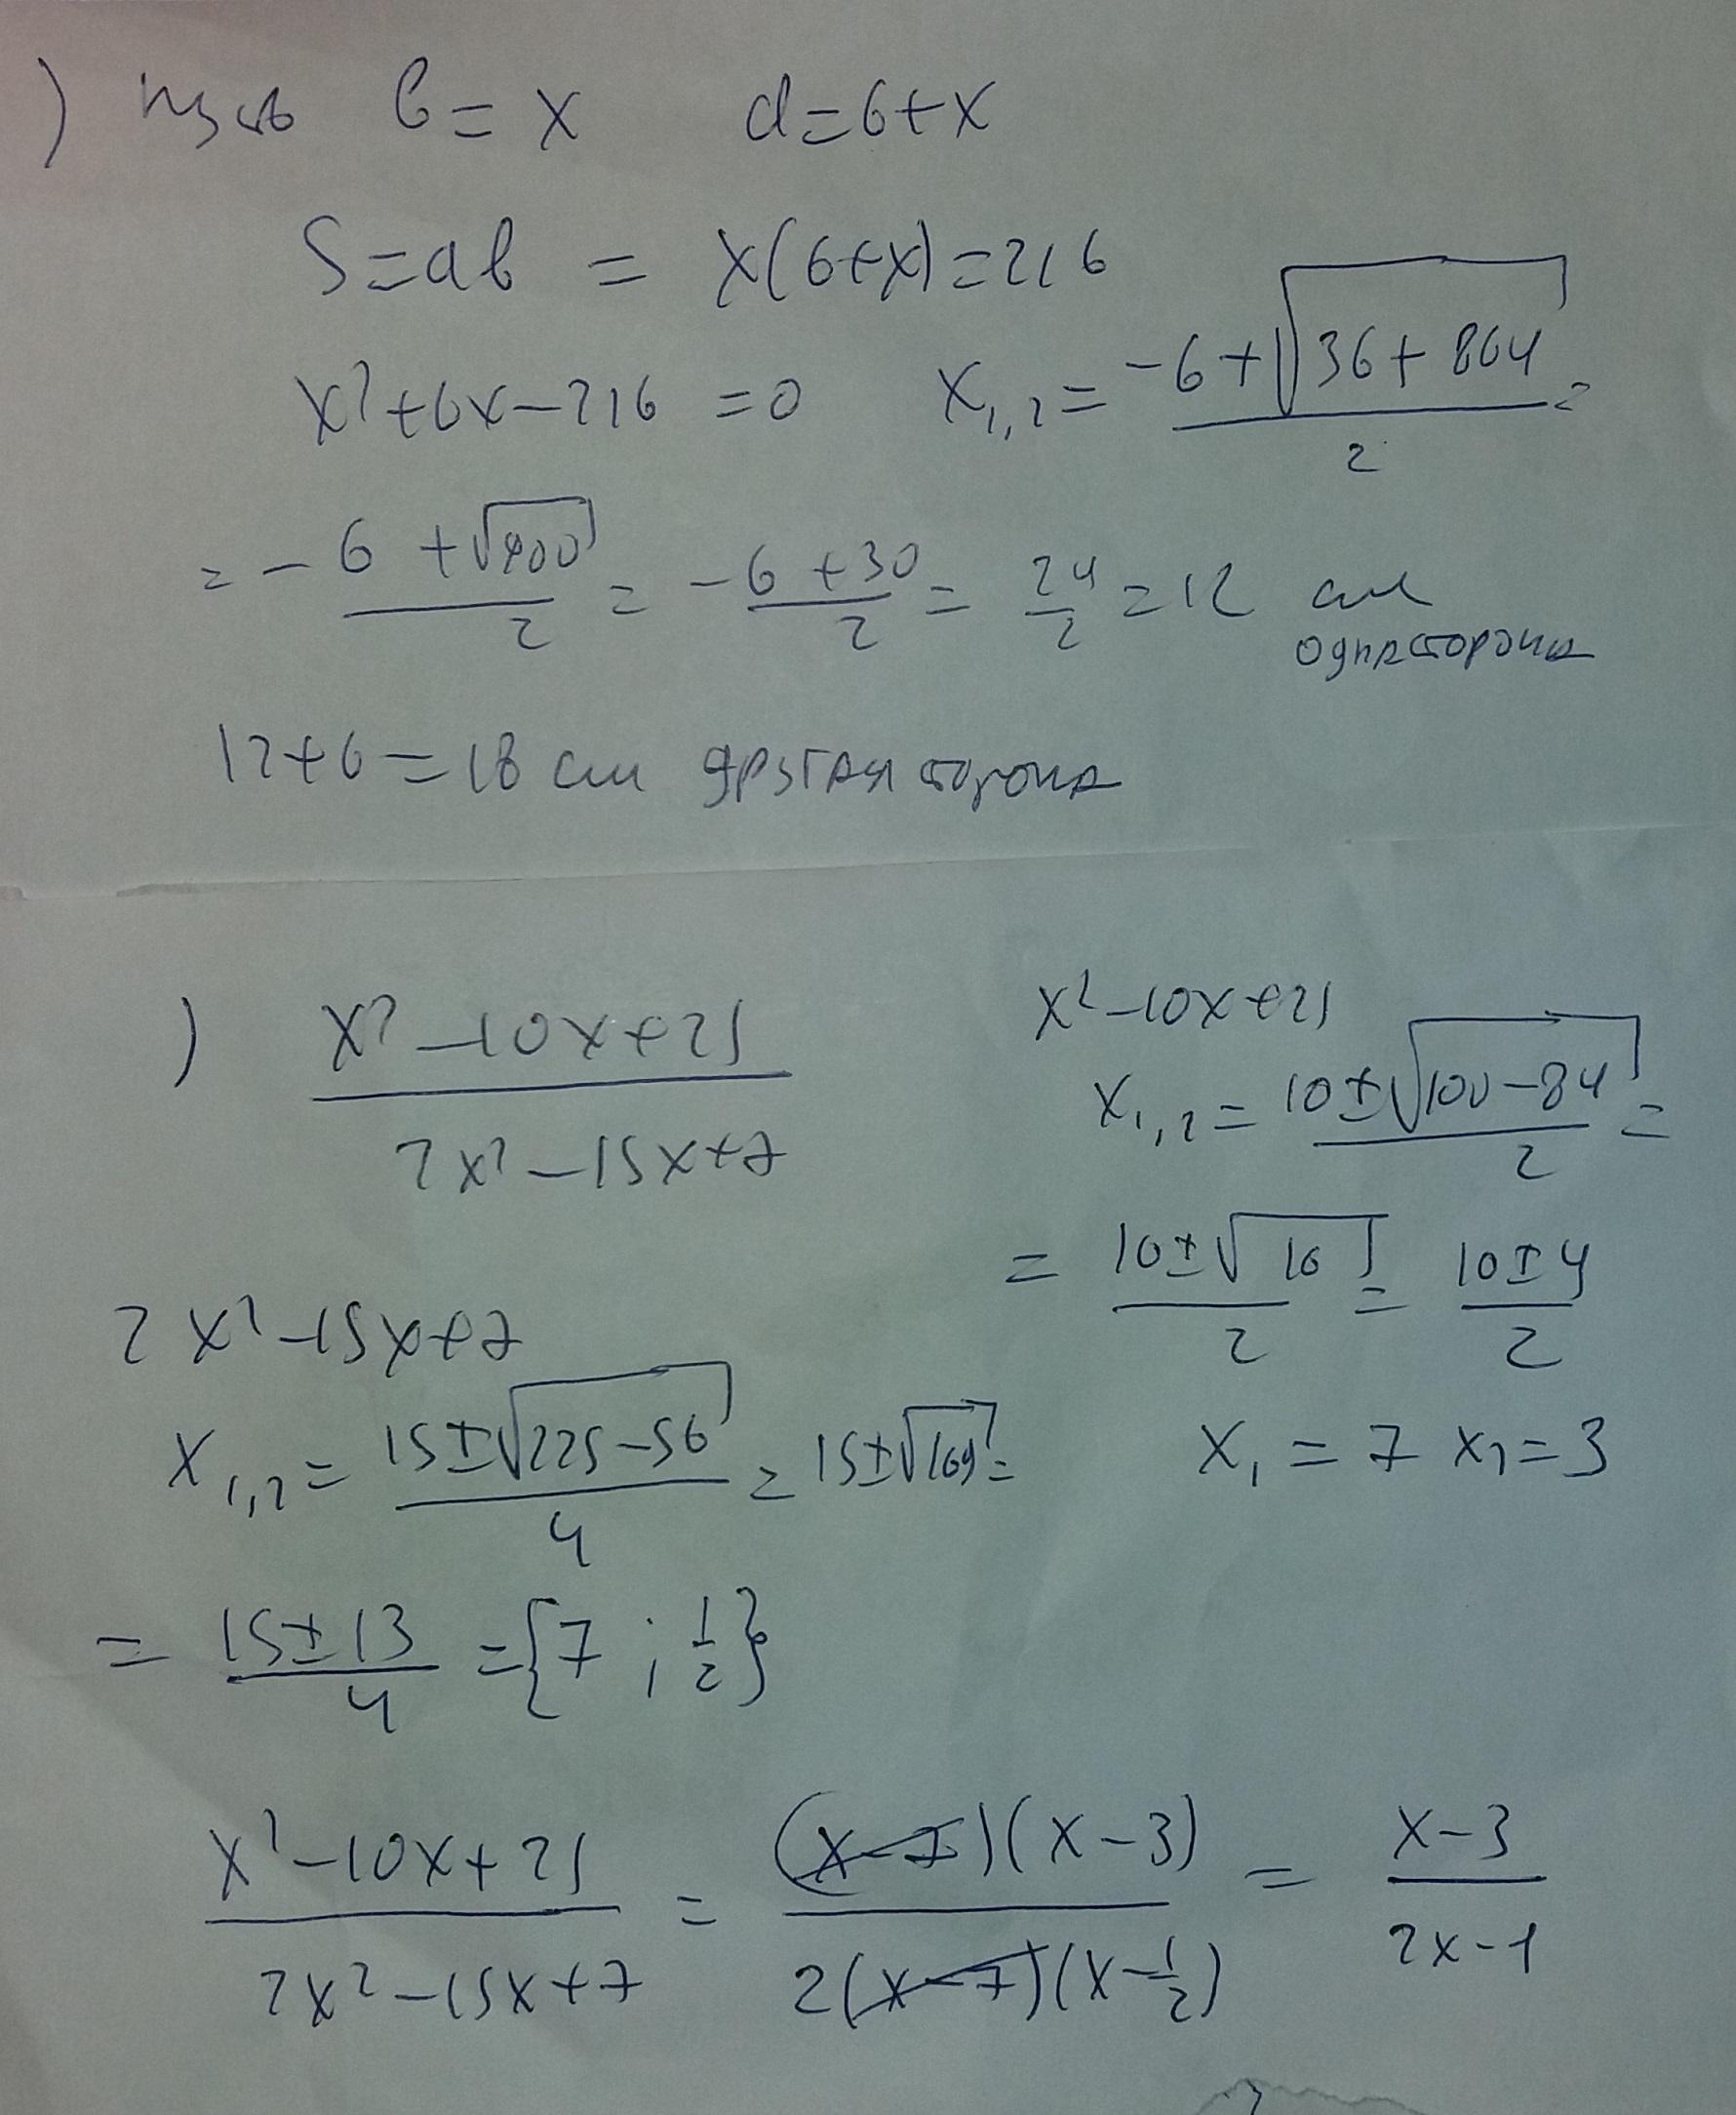 ) пусть b = x d = 6 + x
S = ab = x(6 + x) = 216
x² + 6x - 216 = 0 x₁,₂ = (-6 + √(36 + 864)) / 2 =
= (-6 + √900) / 2 = (-6 + 30) / 2 = 24/2 = 12 см
одна сторона
12 + 6 = 18 см другая сторона
) (x² - 10x + 21) / (2x² - 15x + 7)
x² - 10x + 21
x₁,₂ = (10 ± √(100 - 84)) / 2 =
= (10 ± √16) / 2 = (10 ± 4) / 2
x₁ = 7 x₂ = 3
2x² - 15x + 7
x₁,₂ = (15 ± √(225 - 56)) / 4 = 15 ± √169 =
= (15 ± 13) / 4 = {7 ; 1/2}
(x² - 10x + 21) / (2x² - 15x + 7) = ((x - 7)(x - 3)) / (2(x - 7)(x - 1/2)) = (x - 3) / (2x - 1)